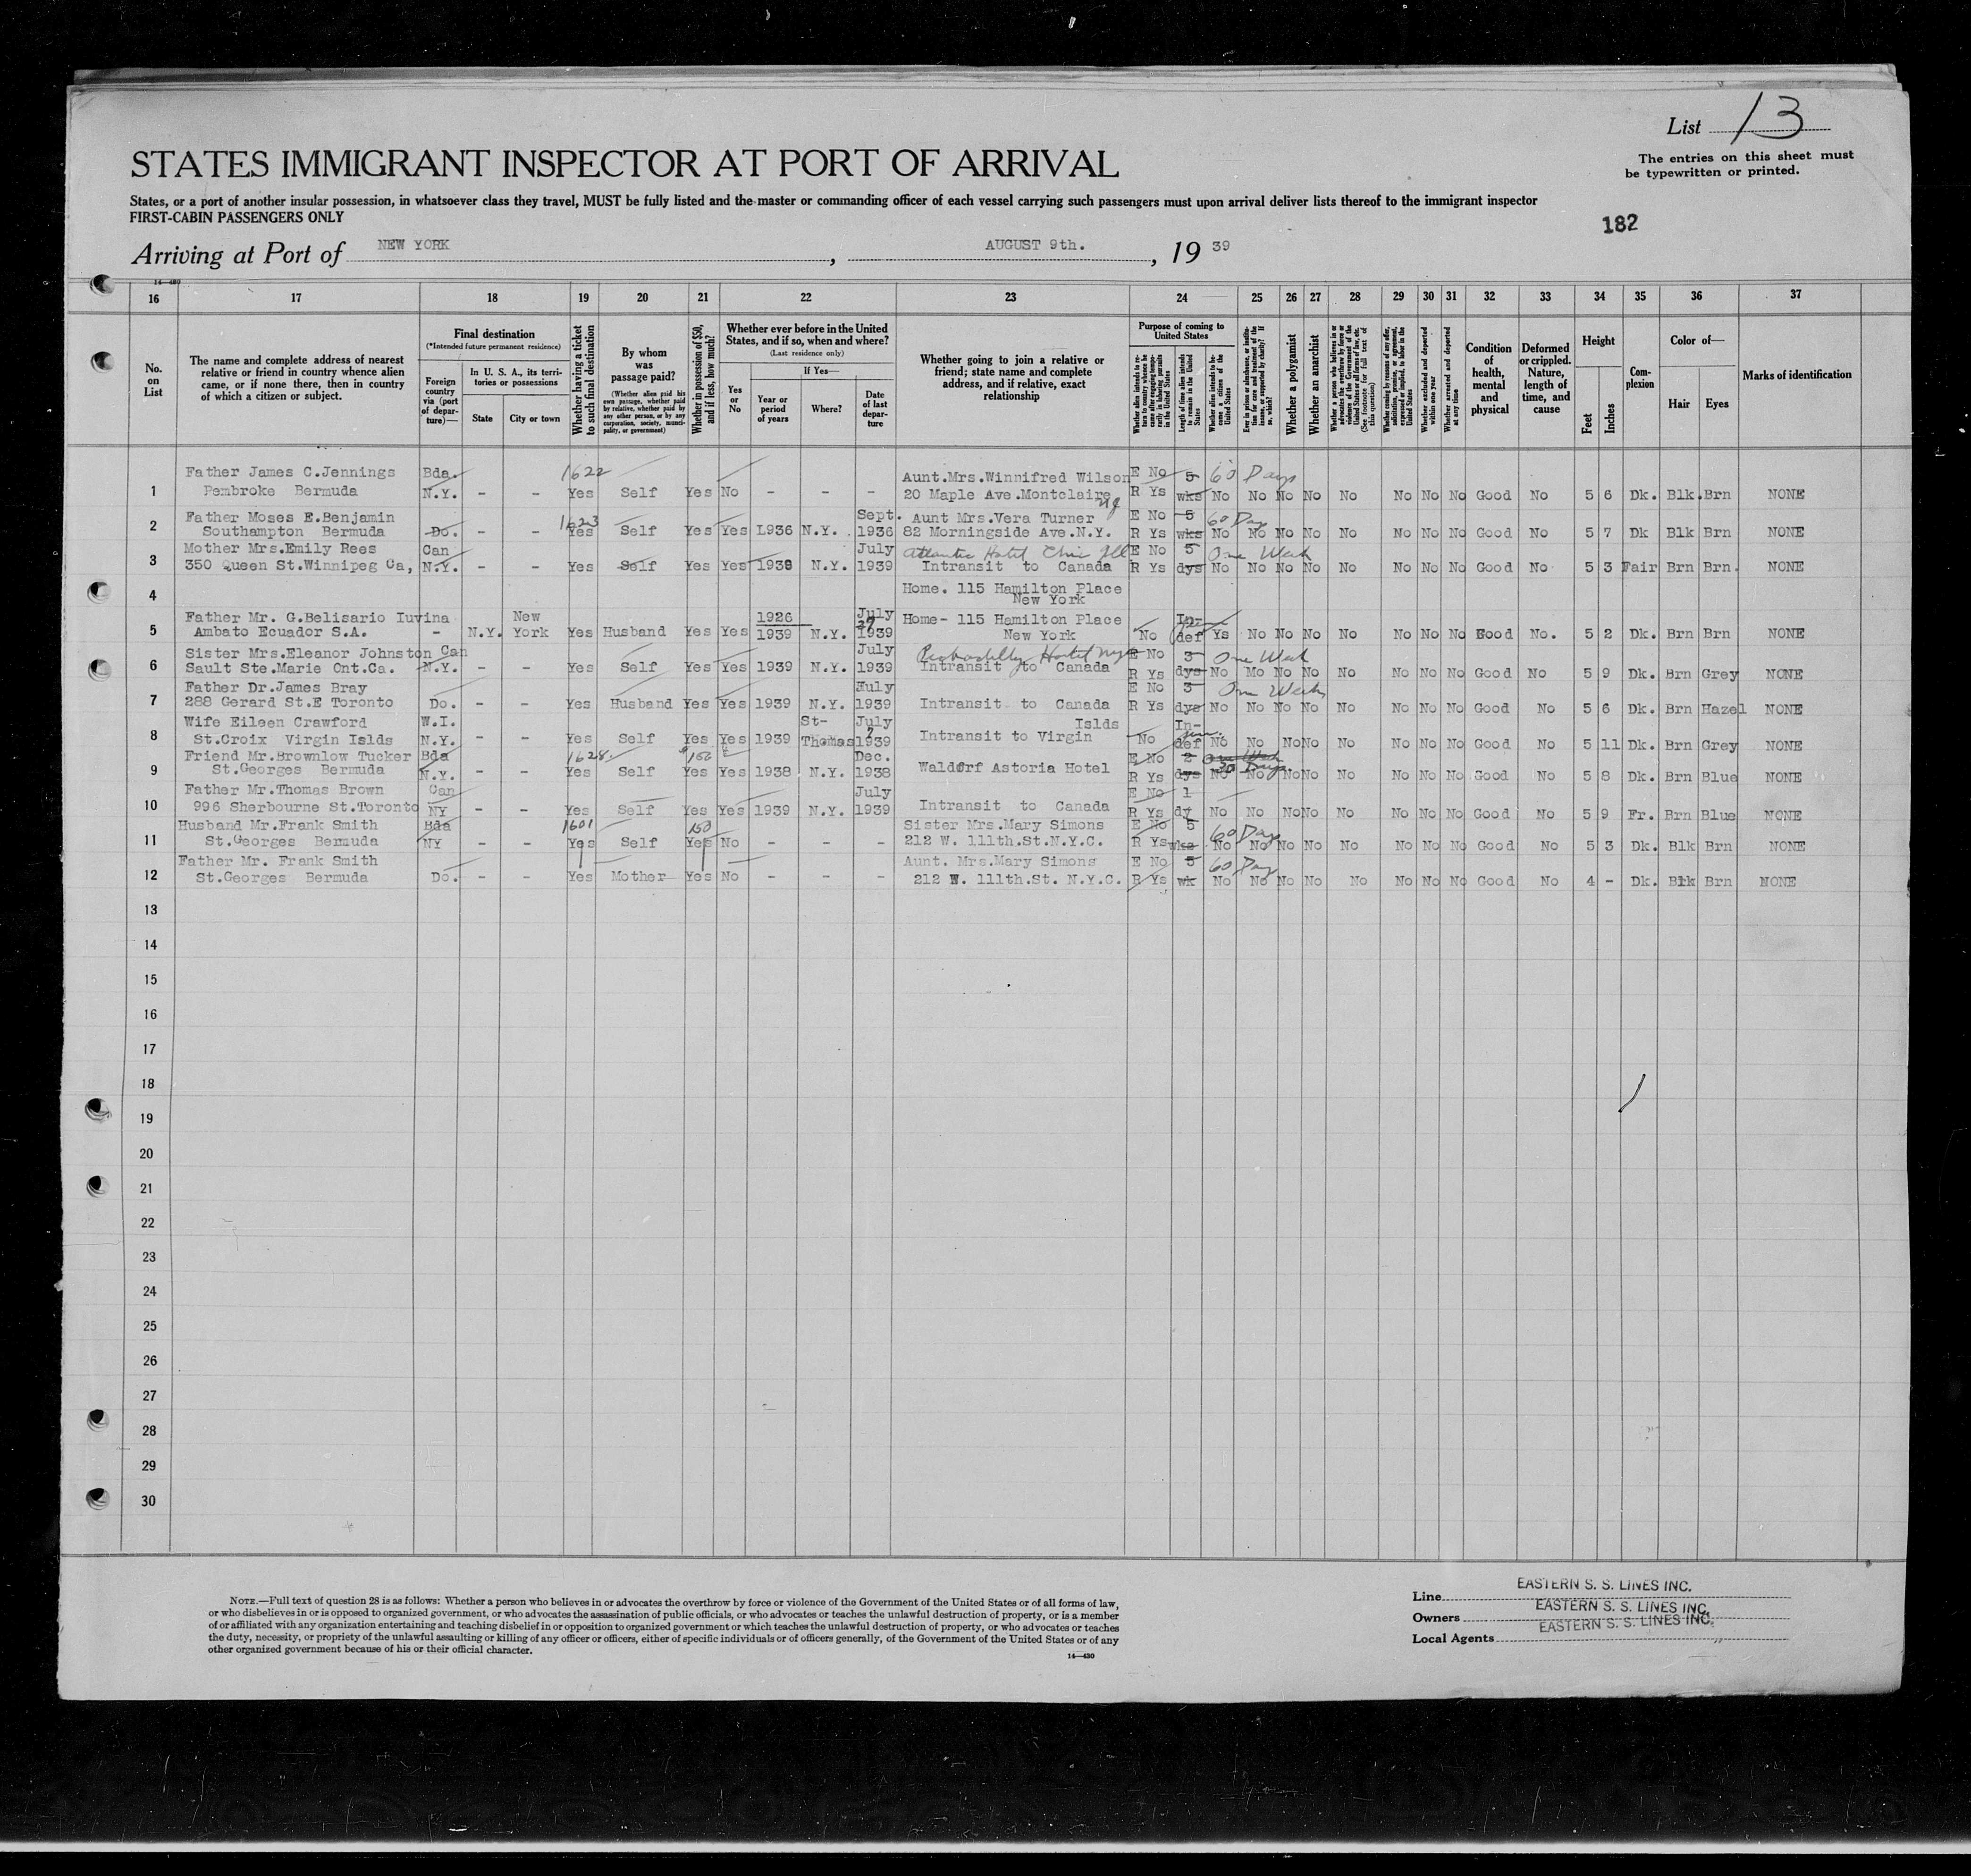 List 13
The entries on this sheet must
be typewritten or printed.
STATES IMMIGRANT INSPECTOR AT PORT OF ARRIVAL
States, or a port of another insular possession, in whatsoever class they travel, MUST be fully listed and the master or commanding officer of each vessel carrying such passengers must upon arrival deliver lists thereof to the immigrant inspector
FIRST-CABIN PASSENGERS ONLY
182
Arriving at Port of NEW YORK, AUGUST 9th., 19 39
14—480
16 17 18 19 20 21 22 23 24 25 26 27 28 29 30 31 32 33 34 35 36 37
No. on List
The name and complete address of nearest relative or friend in country whence alien came, or if none there, then in country of which a citizen or subject.
Final destination
(*Intended future permanent residence)
Foreign country via (port of departure)—
In U. S. A., its territories or possessions
State
City or town
Whether having a ticket to such final destination
By whom was passage paid?
(Whether alien paid his own passage, whether paid by relative, whether paid by any other person, or by any corporation, society, municipality, or government)
Whether in possession of $50, and if less, how much?
Whether ever before in the United States, and if so, when and where?
(Last residence only)
Yes or No
If Yes—
Year or period of years
Where?
Date of last departure
Whether going to join a relative or friend; state name and complete address, and if relative, exact relationship
Purpose of coming to United States
Whether alien intends to return to country whence he came after engaging temporarily in laboring pursuits in the United States
Length of time alien intends to remain in the United States
Whether alien intends to become a citizen of the United States
Ever in prison or almshouse, or institution for care and treatment of the insane, or supported by charity? If so, which?
Whether a polygamist
Whether an anarchist
Whether a person who believes in or advocates the overthrow by force or violence of the Government of the United States or all forms of law, etc. (See footnote for full text of this question)
Whether coming by reason of any offer, solicitation, promise, or agreement, expressed or implied, to labor in the United States
Whether excluded and deported within one year
Whether arrested and deported at any time
Condition of health, mental and physical
Deformed or crippled. Nature, length of time, and cause
Height
Feet
Inches
Complexion
Color of—
Hair
Eyes
Marks of identification
Father James C.Jennings Bda. 1622 Aunt.Mrs.Winnifred Wilson E No 5 60 Days
1 Pembroke Bermuda N.Y. - - Yes Self Yes No - - - 20 Maple Ave.Montclaire NJ R Ys wks No No No No No No No No Good No 5 6 Dk. Blk. Brn NONE
Father Moses E.Benjamin 1623 Sept. Aunt Mrs.Vera Turner E No 5 60 Day
2 Southampton Bermuda Do. - - Yes Self Yes Yes 1936 N.Y. 1936 82 Morningside Ave.N.Y. R Ys wks No No No No No No No No Good No 5 7 Dk Blk Brn NONE
Mother Mrs.Emily Rees Can July Atlantic Hotel Chic Ill E No 5 One Week
3 350 Queen St.Winnipeg Ca, N.Y. - - Yes Self Yes Yes 1939 N.Y. 1939 Intransit to Canada R Ys dys No No No No No No No No Good No 5 3 Fair Brn Brn. NONE
4 Home. 115 Hamilton Place
New York
Father Mr. G.Belisario Iuvina New 1926 July 27 Home- 115 Hamilton Place In-
5 Ambato Ecuador S.A. - N.Y. York Yes Husband Yes Yes 1939 N.Y. 1939 New York No def Ys No No No No No No No Good No. 5 2 Dk. Brn Brn NONE
Sister Mrs.Eleanor Johnston Can July Hotel E No 3 One Week
6 Sault Ste.Marie Ont.Ca. N.Y. - - Yes Self Yes Yes 1939 N.Y. 1939 Intransit to Canada R Ys dys No Mo No No No No No No Good No 5 9 Dk. Brn Grey NONE
Father Dr.James Bray July E No 3 One Week
7 288 Gerard St.E Toronto Do. - - Yes Husband Yes Yes 1939 N.Y. 1939 Intransit to Canada R Ys dys No No No No No No No No Good No 5 6 Dk. Brn Hazel NONE
Wife Eileen Crawford W.I. St- July Islds In-
8 St.Croix Virgin Islds N.Y. - - Yes Self Yes Yes 1939 Thomas 1939 Intransit to Virgin No def No No No No No No No No Good No 5 11 Dk. Brn Grey NONE
Friend Mr.Brownlow Tucker Bda 1628 150 Dec. E No 2 One Week
9 St.Georges Bermuda N.Y. - - Yes Self Yes Yes 1938 N.Y. 1938 Waldorf Astoria Hotel R Ys dys No 30 Days No No No No No No No Good No 5 8 Dk. Brn Blue NONE
Father Mr.Thomas Brown Can July E No 1
10 996 Sherbourne St.Toronto NY - - Yes Self Yes Yes 1939 N.Y. 1939 Intransit to Canada R Ys dy No No No No No No No No Good No 5 9 Fr. Brn Blue NONE
Husband Mr.Frank Smith Bda 1601 150 Sister Mrs.Mary Simons E No 5 60 Days
11 St.Georges Bermuda NY - - Yes Self Yes No - - - 212 W. 111th.St.N.Y.C. R Ys wks No No No No No No No No Good No 5 3 Dk. Blk Brn NONE
Father Mr. Frank Smith Aunt. Mrs.Mary Simons E No 5 60 Day
12 St.Georges Bermuda Do. - - Yes Mother Yes No - - - 212 W. 111th.St. N.Y.C. R Ys wk No No No No No No No No Good No 4 - Dk. Blk Brn NONE
13
14
15
16
17
18
19
20
21
22
23
24
25
26
27
28
29
30
NOTE.—Full text of question 28 is as follows: Whether a person who believes in or advocates the overthrow by force or violence of the Government of the United States or of all forms of law,
or who disbelieves in or is opposed to organized government, or who advocates the assassination of public officials, or who advocates or teaches the unlawful destruction of property, or is a member
of or affiliated with any organization entertaining and teaching disbelief in or opposition to organized government or which teaches the unlawful destruction of property, or who advocates or teaches
the duty, necessity, or propriety of the unlawful assaulting or killing of any officer or officers, either of specific individuals or of officers generally, of the Government of the United States or of any
other organized government because of his or their official character.
14—430
Line EASTERN S. S. LINES INC.
Owners EASTERN S. S. LINES INC.
Local Agents EASTERN S. S. LINES INC.